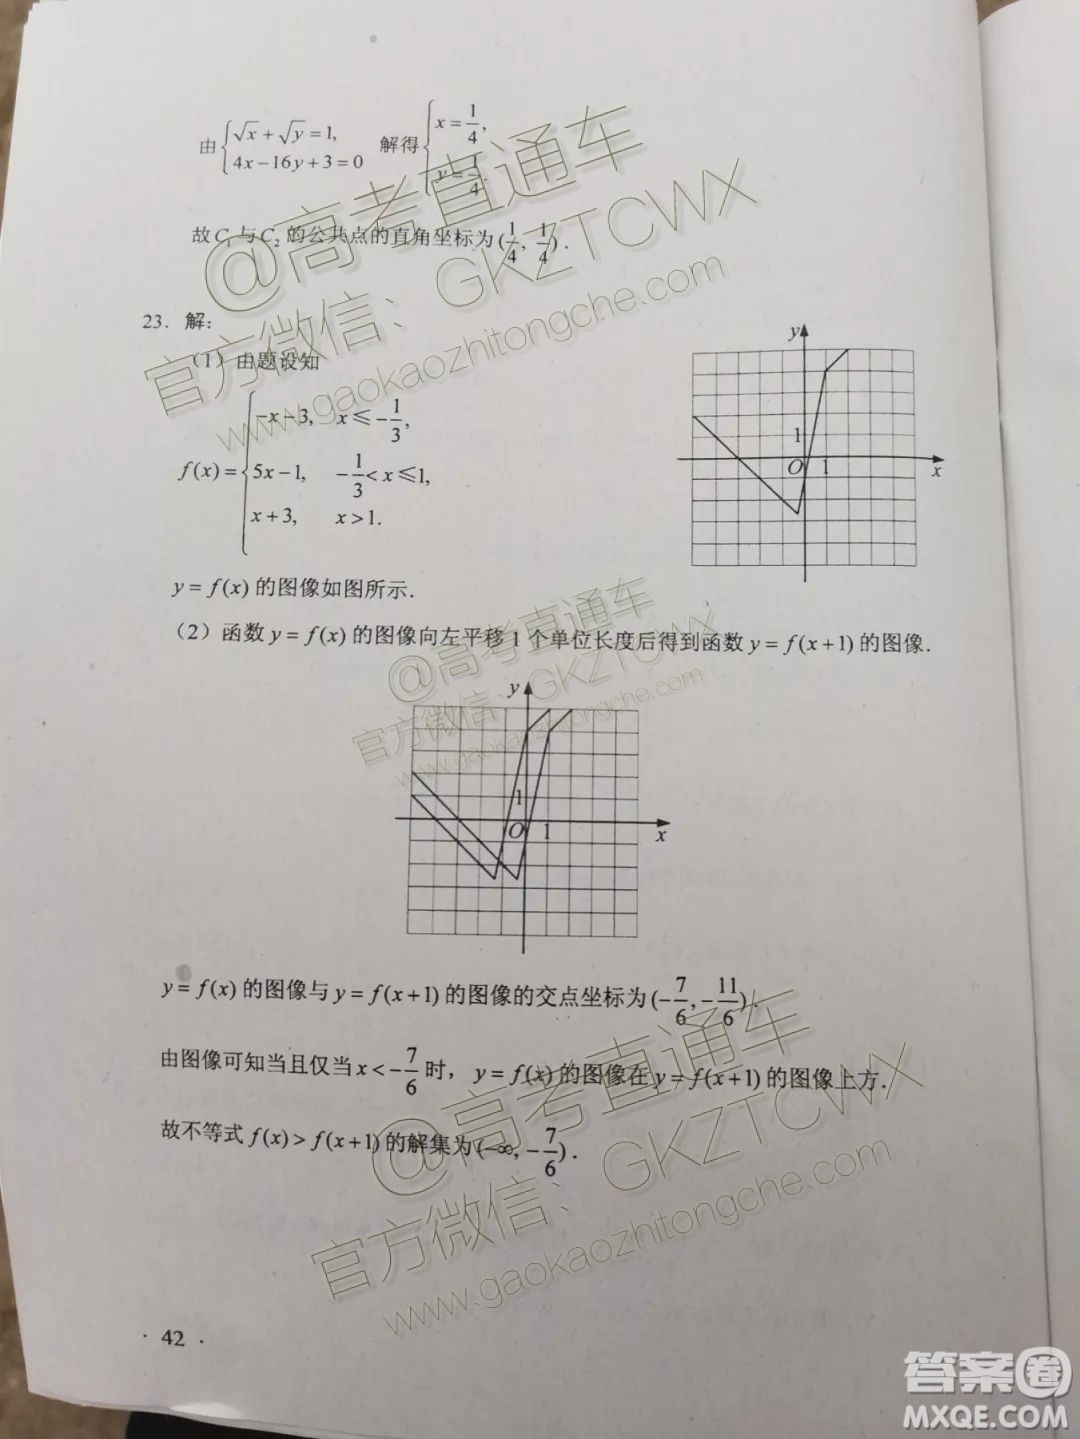 由{√x+√y=1, 4x-16y+3=0 解得{x=1/4, y=1/4.
故C₁与C₂的公共点的直角坐标为(1/4, 1/4).
23. 解:
(1) 由题设知
f(x)={
-x-3, x≤-1/3,
5x-1, -1/3<x≤1,
x+3, x>1.
y
1
O 1 x
y=f(x)的图像如图所示.
(2) 函数y=f(x)的图像向左平移1个单位长度后得到函数y=f(x+1)的图像.
y
1
O 1 x
y=f(x)的图像与y=f(x+1)的图像的交点坐标为(-7/6,-11/6).
由图像可知当且仅当x<-7/6时, y=f(x)的图像在y=f(x+1)的图像上方.
故不等式f(x)>f(x+1)的解集为(-∞,-7/6).
· 42 ·
@高考直通车
官方微信、GKZTCWX
www.gaokaozhitongche.com
@高考直通车
官方微信、GKZTCWX
www.gaokaozhitongche.com
@高考直通车
官方微信、GKZTCWX
www.gaokaozhitongche.com
答案卷
MXQE.COM